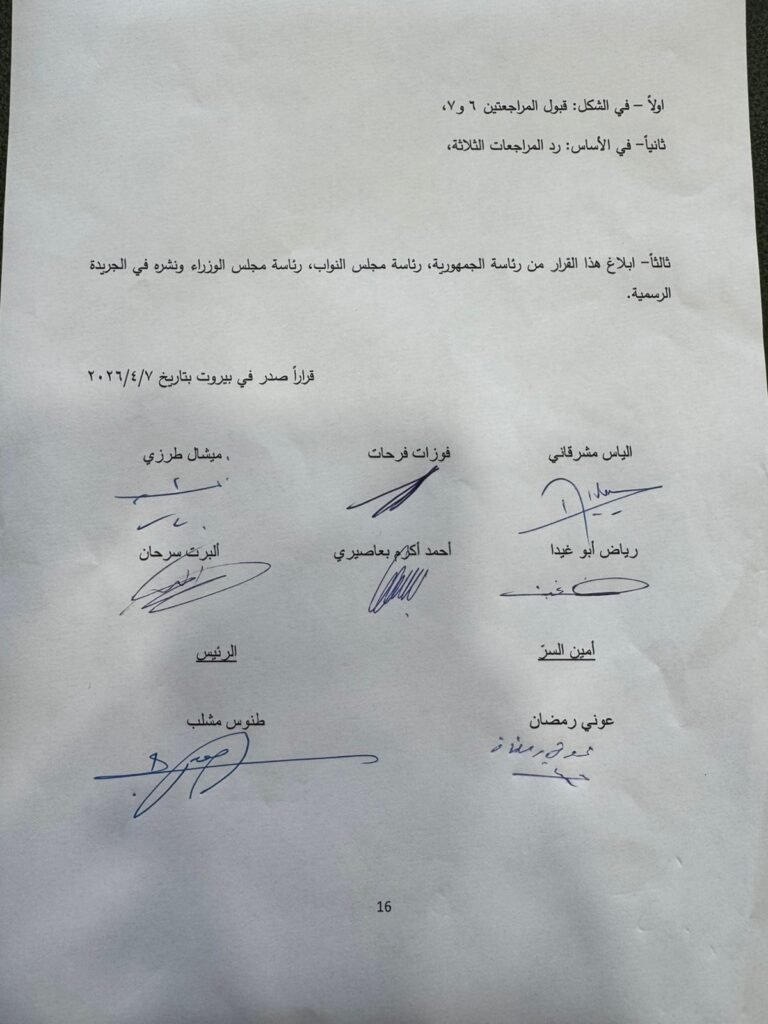 اولاً – في الشكل: قبول المراجعتين ٦ و٧،
ثانياً– في الأساس: رد المراجعات الثلاثة،
ثالثاً– ابلاغ هذا القرار من رئاسة الجمهورية، رئاسة مجلس النواب، رئاسة مجلس الوزراء ونشره في الجريدة
الرسمية.
قراراً صدر في بيروت بتاريخ ٢٠٢٦/٤/٧
الياس مشرقاني فوزات فرحات ميشال طرزي
رياض أبو غيدا أحمد أكرم بعاصيري ألبرت سرحان
أمين السرّ الرئيس
عوني رمضان طنوس مشلب
عوني رمضان
16